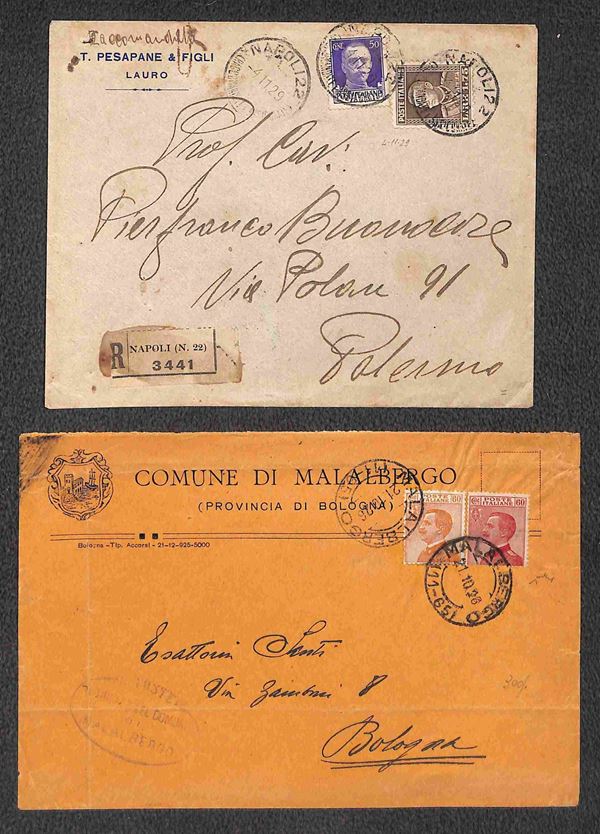 Raccomandata
T. PESAPANE & FIGLI
LAURO
NAPOLI 22
4.11.29
50
NAPOLI 22
POSTE ITALIANE
4-11-29
Prof. Cav.
Pierfranco Buonocore
Via Polari 91
Palermo
R NAPOLI (N. 22)
3441
COMUNE DI MALALBERGO
(PROVINCIA DI BOLOGNA)
Bologna - Tip. Accorsi - 21-12-925-5000
MALALBERGO
21.10.26
POSTE ITALIANE 60
POSTE ITALIANE 60
MALALBERGO
21.10.26
Esattoria
Via Zamboni 8
Bologna
MALALBERGO
300